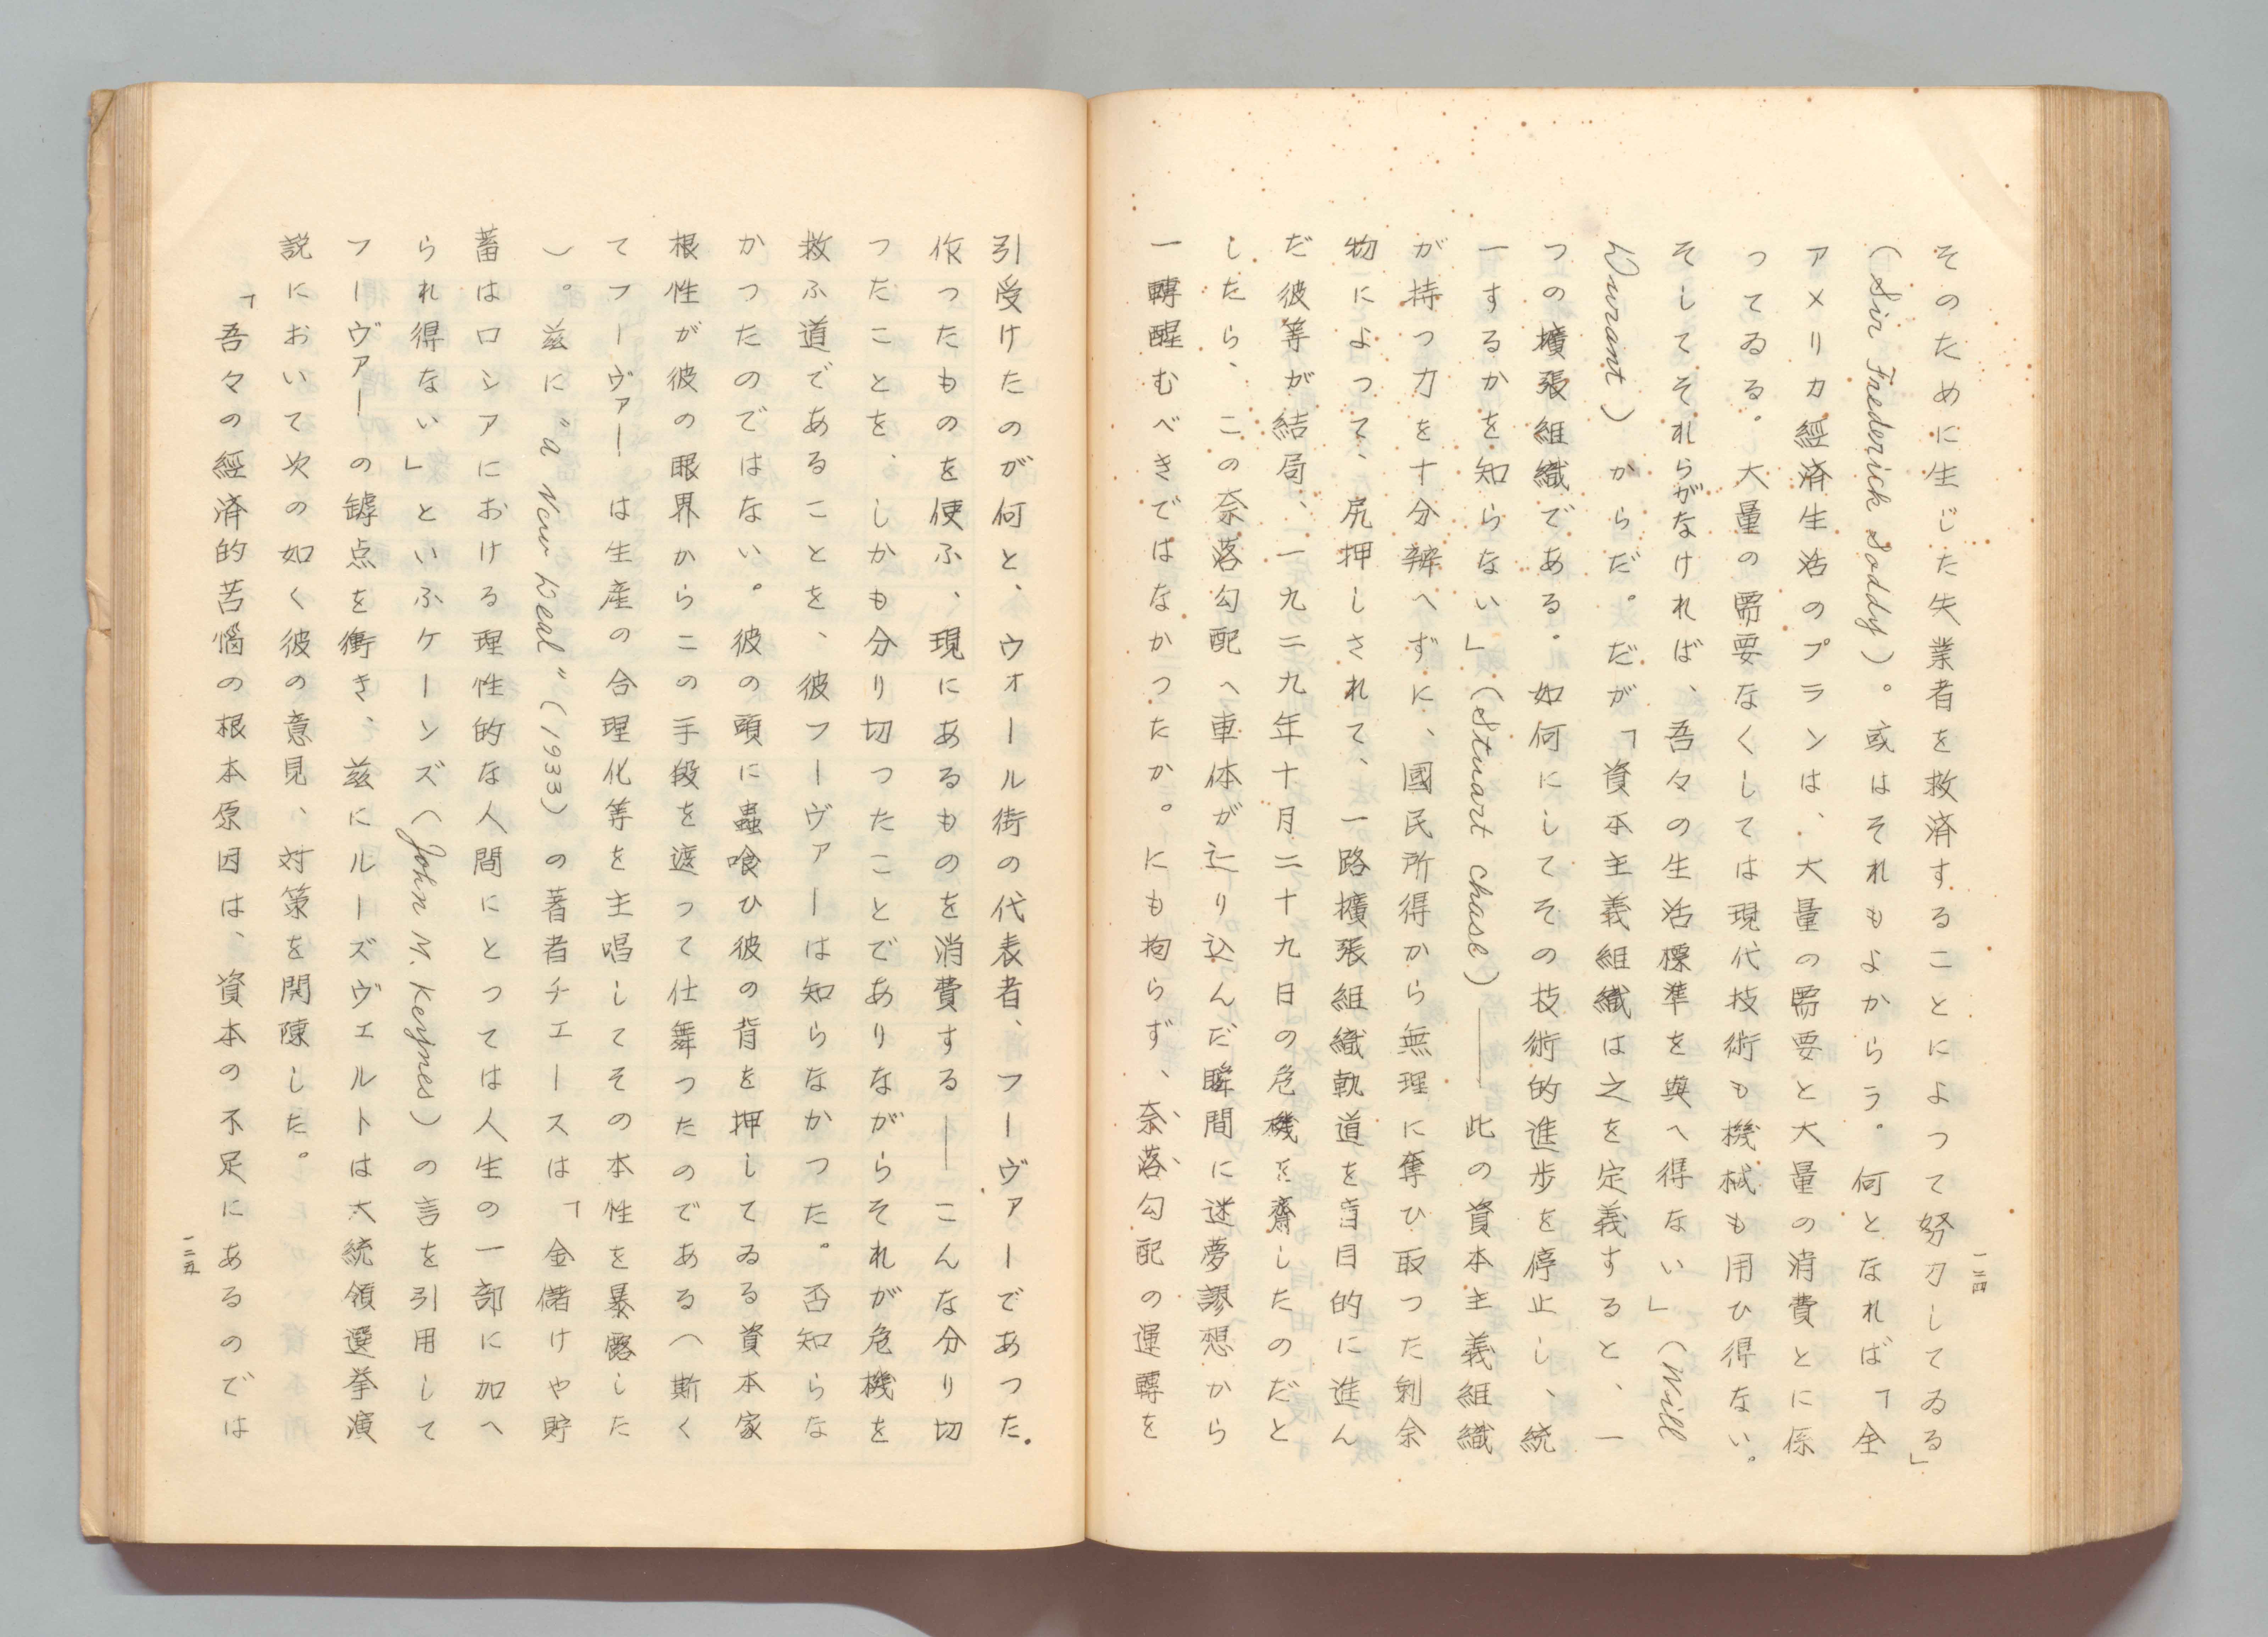 一二四
そのために生じた失業者を救済することによつて努力してゐる」
(Sir Frederick Soddy)。或はそれもよからう。何となれば「全
アメリカ經済生活のプランは、大量の需要と大量の消費とに係
つてゐる。大量の需要なくしては現代技術も機械も用ひ得ない。
そしてそれらがなければ、吾々の生活標準を與へ得ない」(Will
Durant)からだ。だが「資本主義組織は之を定義すると、一
つの擴張組織である。如何にしてその技術的進歩を停止し、統
一するかを知らない」(Stuart Chase)――此の資本主義組織
が持つ力を十分辨へずに、國民所得から無理に奪ひ取つた剰余
物によつて、尻押しされて、一路擴張組織軌道を盲目的に進ん
だ彼等が結局、一九二九年十月二十九日の危機を齎したのだと
したら、この奈落勾配へ車体が辷り込んだ瞬間に迷夢謬想から
一轉醒むべきではなかつたか。にも拘らず、奈落勾配の運轉を
引受けたのが何と、ウオール街の代表者、フーヴァーであつた。
作つたものを使ふ、現にあるものを消費する――こんな分り切
つたことを、しかも分り切つたことでありながらそれが危機を
救ふ道であることを、彼フーヴァーは知らなかつた。否知らな
かつたのではない。彼の頭に蟲喰ひ彼の背を押してゐる資本家
根性が彼の眼界からこの手段を遮つて仕舞つたのである(斯く
てフーヴァーは生産の合理化等を主唱してその本性を暴露した
)。茲に"a New Deal"(1933)の著者チエースは「金儲けや貯
蓄はロシアにおける理性的な人間にとつては人生の一部に加へ
られ得ない」といふケーンズ(John M. Keynes)の言を引用して
フーヴァーの罅点を衝き、茲にルーズヴェルトは大統領選挙演
説において次の如く彼の意見、対策を開陳した。
「吾々の經済的苦惱の根本原因は、資本の不足にあるのでは
一二五